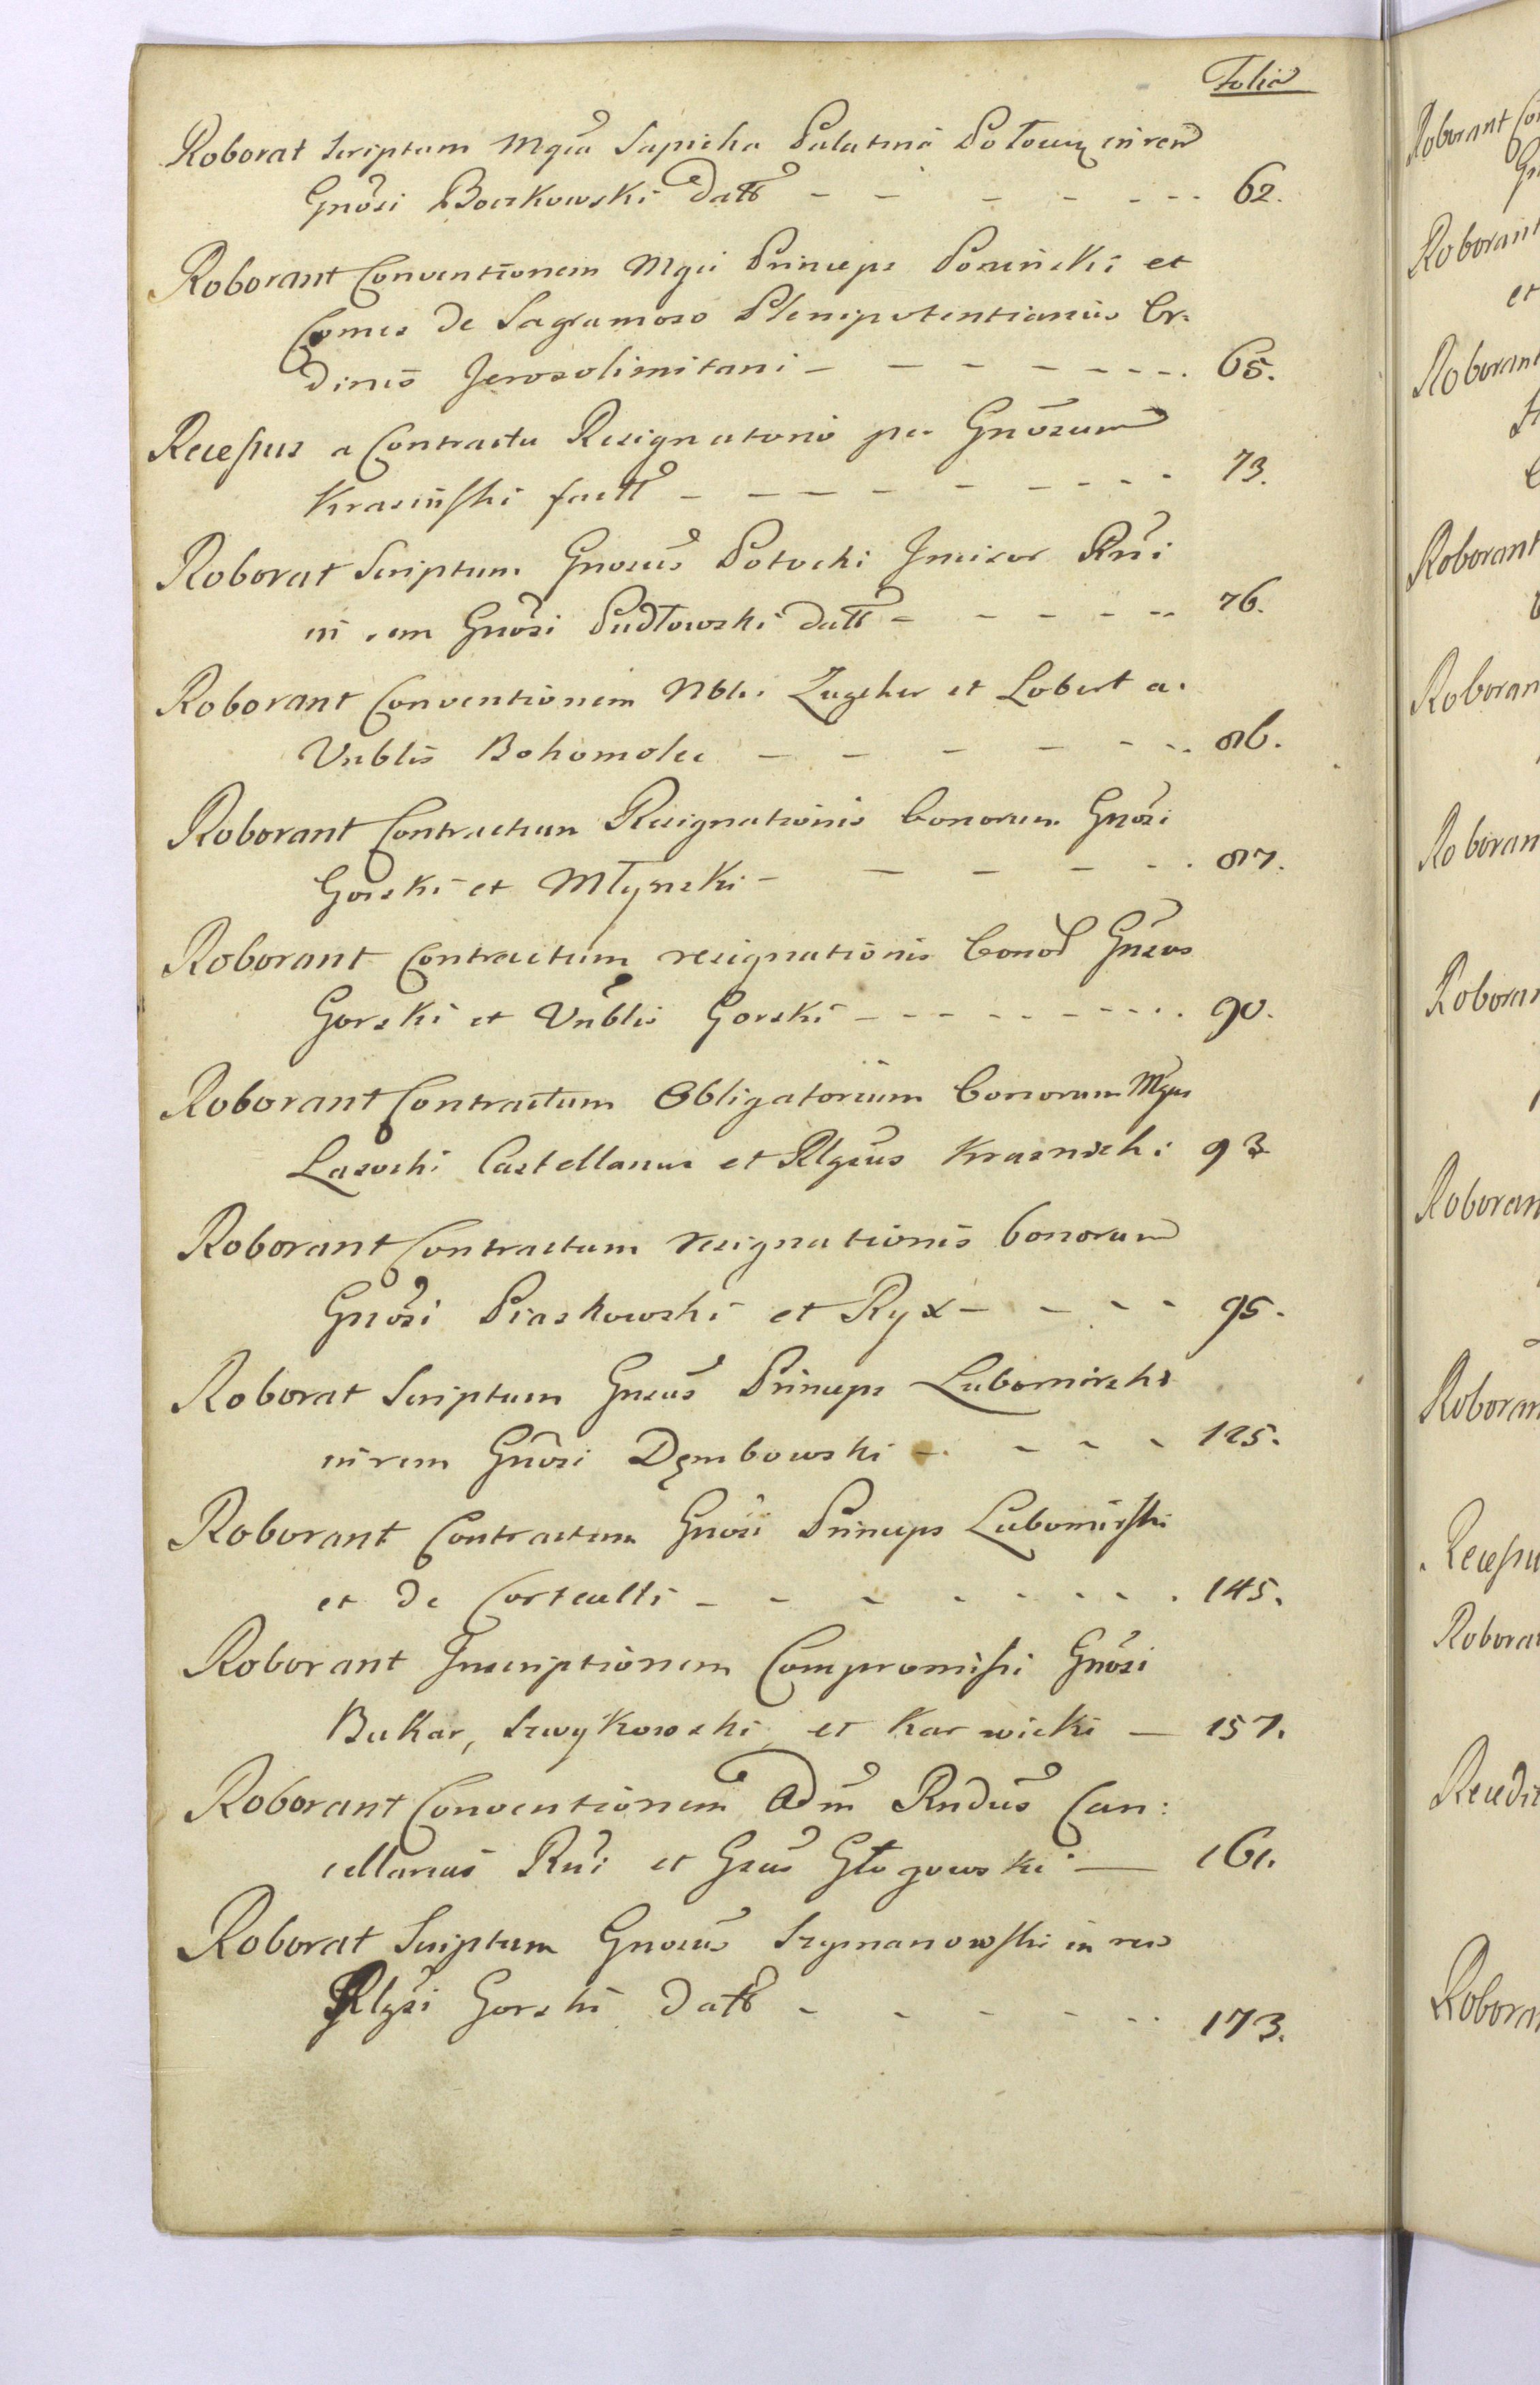 Folia
Roborat Scriptum Mgcus Sapieha Palatinus Połocen in rem
Gnosi Boczkowski datt - - - - - - 62.
Roborant Conventionem Mgci Princeps Poninski et
Comes de Sagramoso Plenipotentiarius Or-
dinis Jerosolimitani - - - - - - - 65.
Recessus a Contractu Resignatorio per Gnosum
Krasinski factt - - - - - - - - - 73.
Roborat Scriptum Gnosus Potocki Incisor Rni
in rem Gnosi Pudłowski datt - - - - - 76.
Roborant Conventionem Nbls Zugehr et Lobert a.
Vnblis Bohomolec - - - - - - - 86.
Roborant Contractum Resignationis bonorum Gnosi
Gorski et Młynski - - - - - - 87.
Roborant Contractum resignationis bonor Gnsus
Gorski et Vnblis Gorski - - - - - - - - - 90.
Roborant Contractum Obligatorium bonorum Mgus
Lasocki Castellanus et Rlgsus Krasnicki 93
Roborant Contractum resignationis bonorum
Gnosi Piaskowski et Ryx - - - - 95.
Roborat Scriptum Gnsus Princeps Lubomirski
in rem Gnosi Dęmbowski - - - - 125.
Roborant Contractum Gnosi Princeps Lubomirski
et de Corticelli - - - - - - - - 145.
Roborant Inscriptionem Compromissi Gnosi
Bukar, Szwykowski, et Karwicki - 157.
Roborant Conventionem Adm Rndus Can:
cellarius Rni et Gsus Głogowski - 161.
Roborat Scriptum Gnosus Szymanowski in rem
Rlgsi Gorski datt - - - - - - 173.
Roborant
Roborant
et
Roborant
Roborant
Roboran
Roboran
Roboran
Roboran
Roboran
Recessu
Robora
Robora